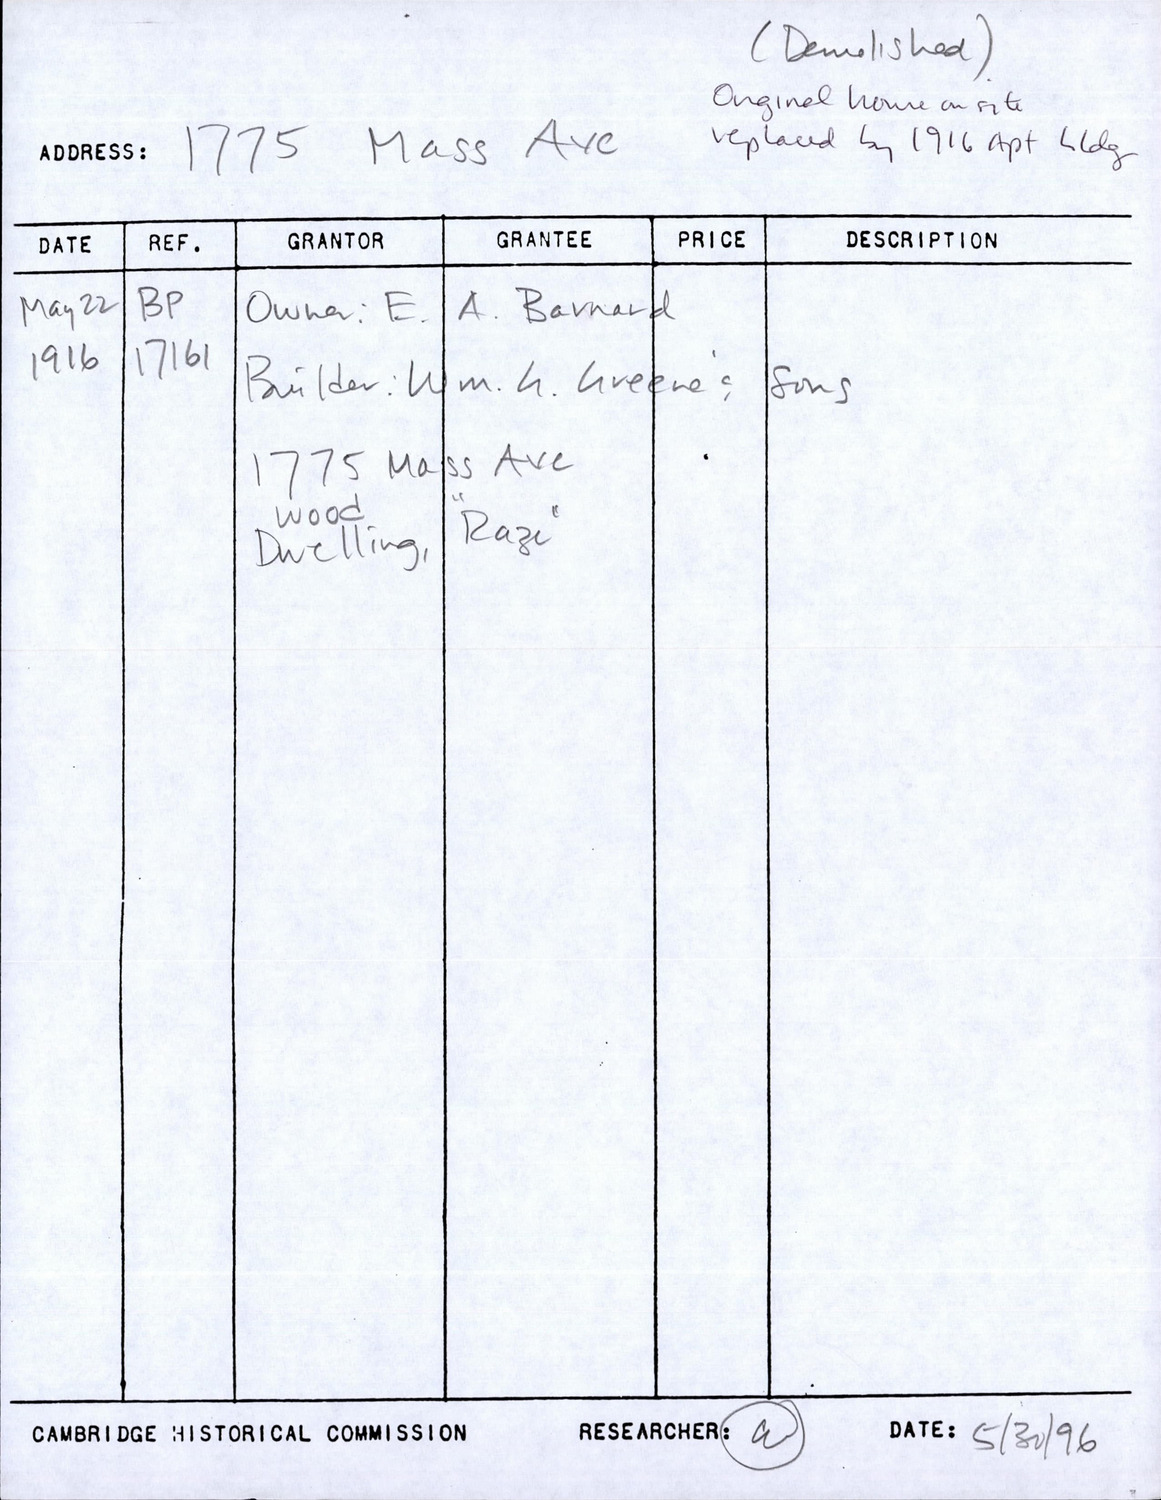 (Demolished)
Original house on site
replaced by 1916 Apt bldg
ADDRESS: 1775 Mass Ave
DATE REF. GRANTOR GRANTEE PRICE DESCRIPTION
May 22 BP Owner: E. A. Barnard
1916 17161
Builder: Wm. G. Greene's Sons
1775 Mass Ave
wood
Dwelling, "Raze"
CAMBRIDGE HISTORICAL COMMISSION RESEARCHER: DATE: 5/30/96